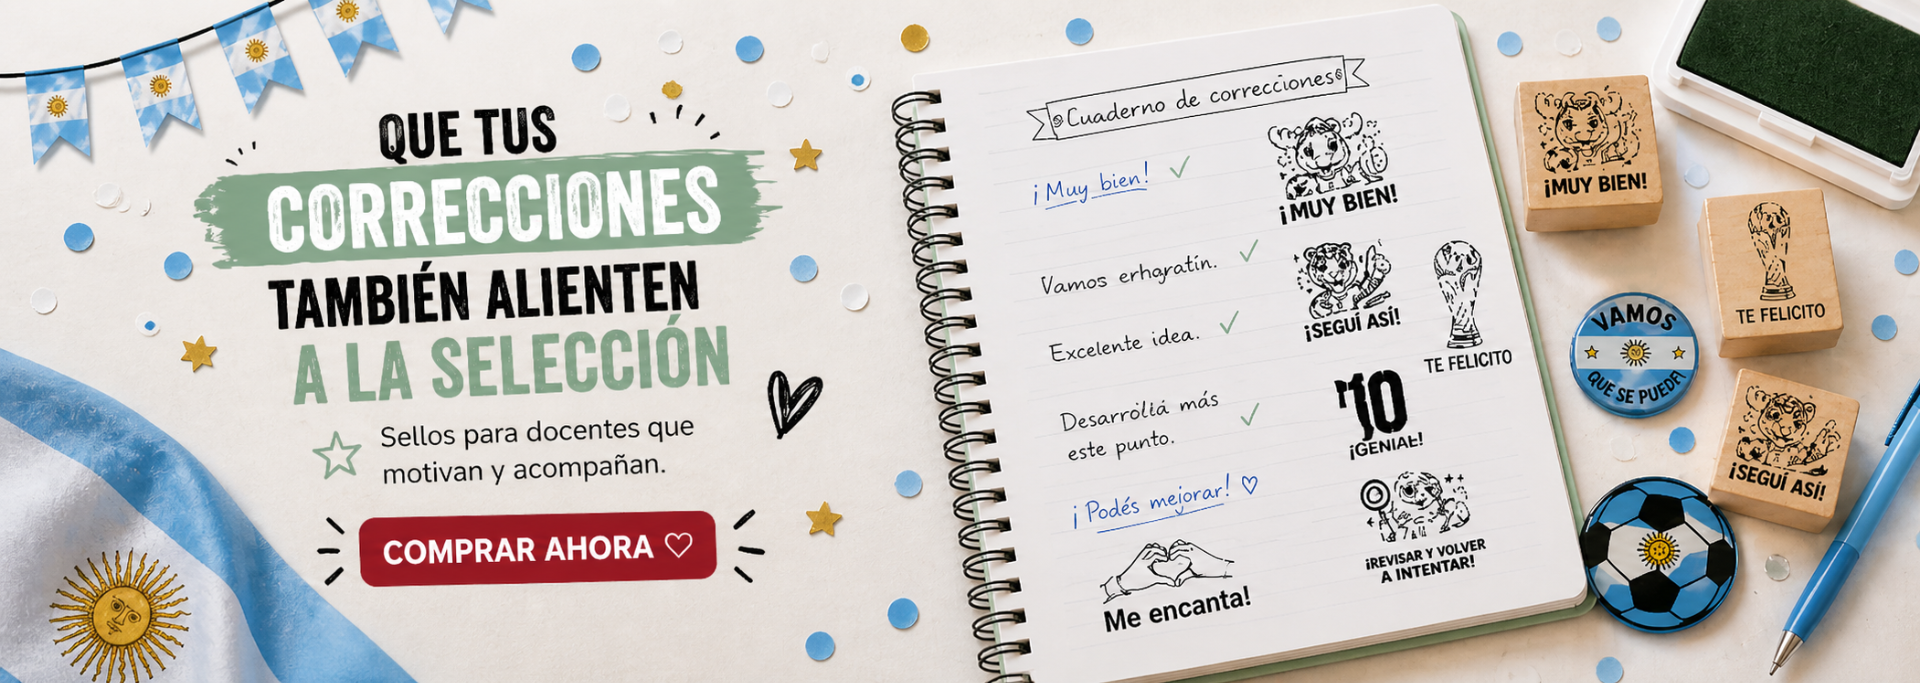 QUE TUS
CORRECCIONES
TAMBIÉN ALIENTEN
A LA SELECCIÓN
Sellos para docentes que
motivan y acompañan.
COMPRAR AHORA
Cuaderno de correcciones
¡Muy bien!
¡MUY BIEN!
Vamos erhgratín.
¡SEGUÍ ASÍ!
Excelente idea.
TE FELICITO
Desarrollá más
este punto.
10
¡GENIAL!
¡Podés mejorar!
¡REVISAR Y VOLVER
A INTENTAR!
Me encanta!
¡MUY BIEN!
TE FELICITO
VAMOS
QUE SE PUEDE!
¡SEGUÍ ASÍ!